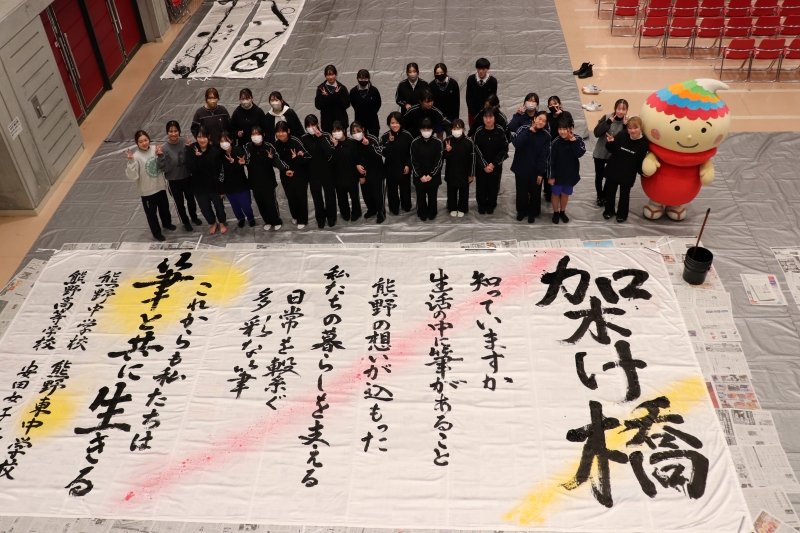 架け橋
知っていますか
生活の中に筆があること
熊野の想いが込もった
私たちの暮らしを支える
日常を繋ぐ
多彩な筆
これからも私たちは
筆と共に生きる
熊野中学校
熊野東中学校
熊野高等学校
安田女子